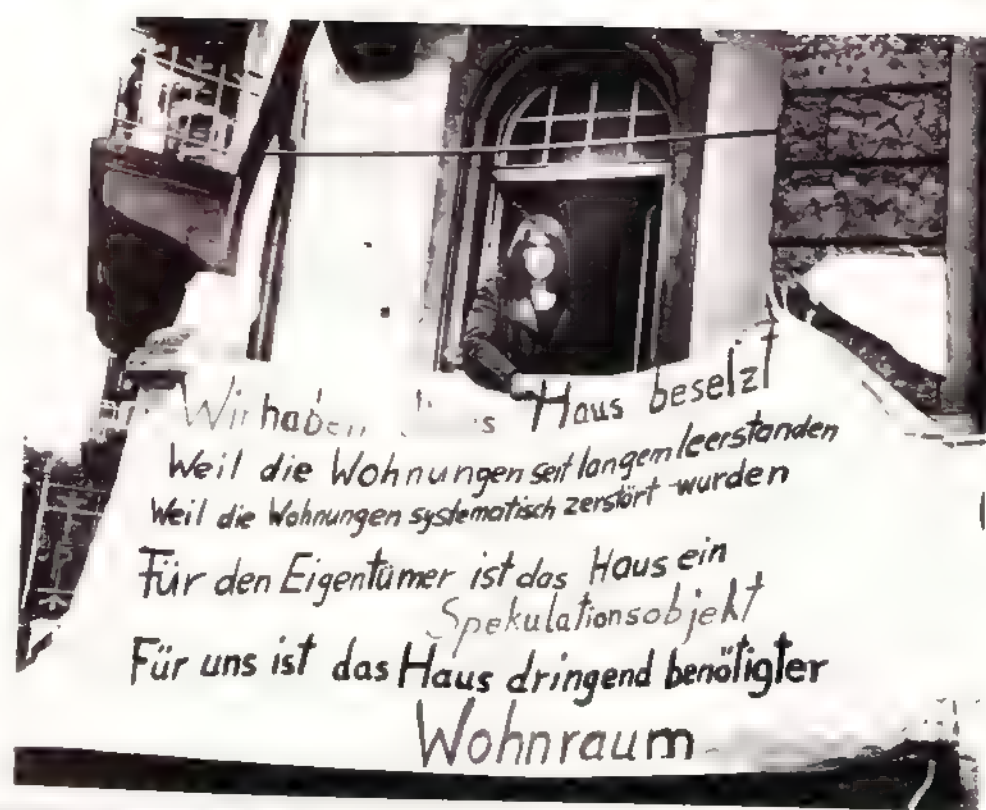 Wir haben Haus besetzt
Weil die Wohnungen seit langem leerstanden
Weil die Wohnungen systematisch zerstört wurden
Für den Eigentümer ist das Haus ein
Spekulationsobjekt
Für uns ist das Haus dringend benötigter
Wohnraum